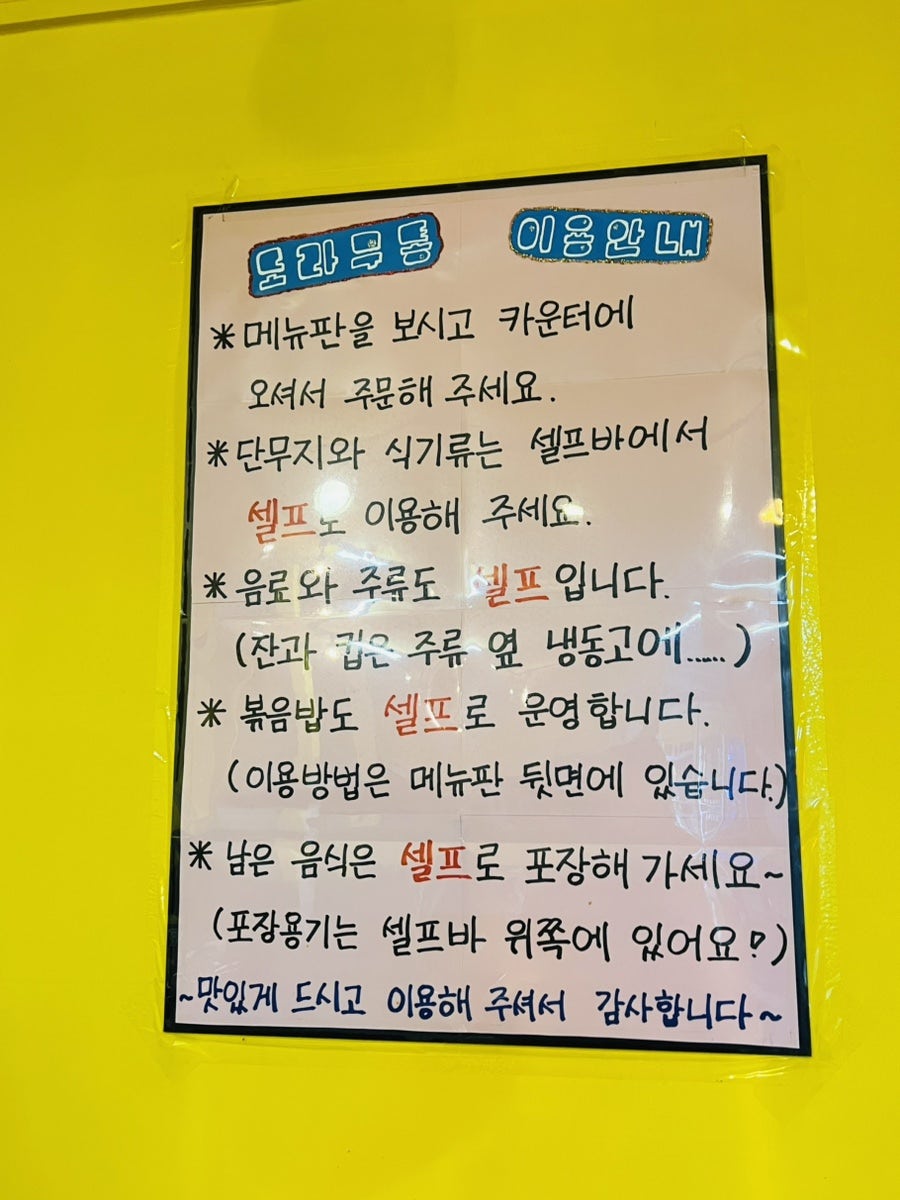 도라무통 이용안내
* 메뉴판을 보시고 카운터에
오셔서 주문해 주세요.
* 단무지와 식기류는 셀프바에서
셀프로 이용해 주세요.
* 음료와 주류도 셀프입니다.
(잔과 컵은 주류 옆 냉동고에......)
* 볶음밥도 셀프로 운영합니다.
(이용방법은 메뉴판 뒷면에 있습니다.)
* 남은 음식은 셀프로 포장해 가세요~
(포장용기는 셀프바 위쪽에 있어요?)
~맛있게 드시고 이용해 주셔서 감사합니다~